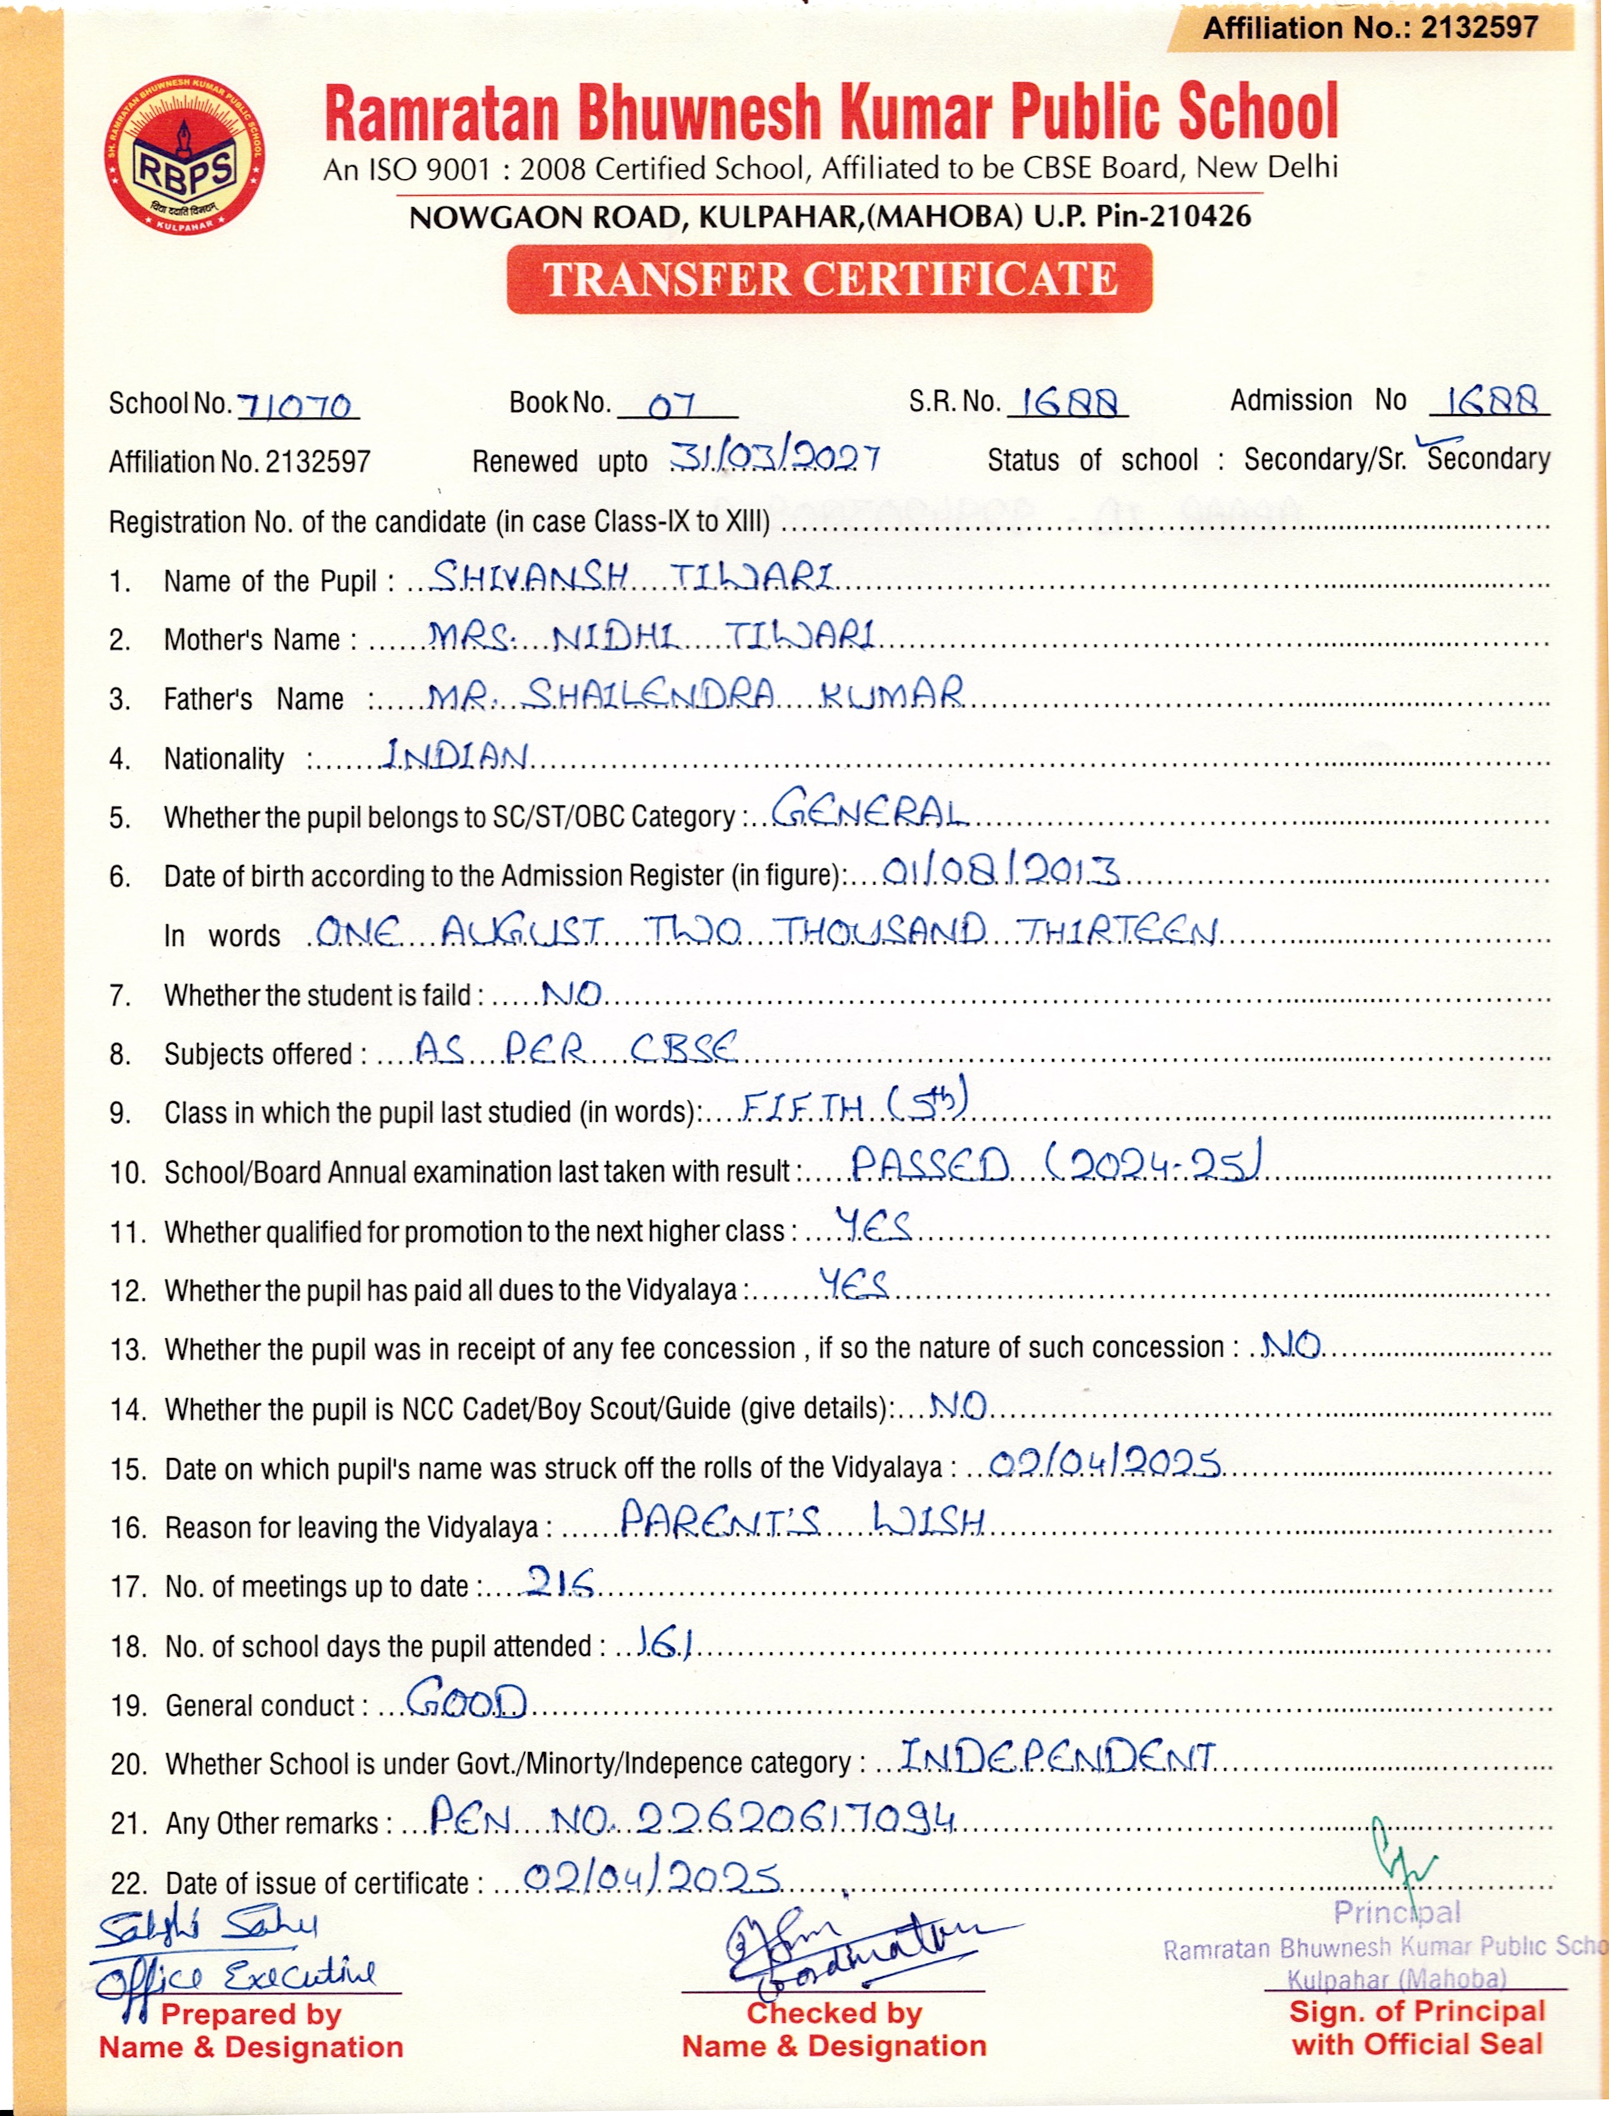 Affiliation No.: 2132597
SH. RAMRATAN BHUWNESH KUMAR PUBLIC SCHOOL
RBPS
विद्या ददाति विनयम्
KULPAHAR
Ramratan Bhuwnesh Kumar Public School
An ISO 9001 : 2008 Certified School, Affiliated to be CBSE Board, New Delhi
NOWGAON ROAD, KULPAHAR,(MAHOBA) U.P. Pin-210426
TRANSFER CERTIFICATE
School No. 71070 Book No. 07 S.R. No. 1688 Admission No 1688
Affiliation No. 2132597 Renewed upto 31/03/2027 Status of school : Secondary/Sr. Secondary
Registration No. of the candidate (in case Class-IX to XIII)
1. Name of the Pupil : SHIVANSH TIWARI
2. Mother's Name : MRS. NIDHI TIWARI
3. Father's Name : MR. SHAILENDRA KUMAR
4. Nationality : INDIAN
5. Whether the pupil belongs to SC/ST/OBC Category : GENERAL
6. Date of birth according to the Admission Register (in figure): 01/08/2013
In words ONE AUGUST TWO THOUSAND THIRTEEN
7. Whether the student is faild : NO
8. Subjects offered : AS PER CBSE
9. Class in which the pupil last studied (in words): FIFTH (5th)
10. School/Board Annual examination last taken with result : PASSED (2024-25)
11. Whether qualified for promotion to the next higher class : YES
12. Whether the pupil has paid all dues to the Vidyalaya : YES
13. Whether the pupil was in receipt of any fee concession , if so the nature of such concession : NO
14. Whether the pupil is NCC Cadet/Boy Scout/Guide (give details): NO
15. Date on which pupil's name was struck off the rolls of the Vidyalaya : 02/04/2025
16. Reason for leaving the Vidyalaya : PARENT'S WISH
17. No. of meetings up to date : 216
18. No. of school days the pupil attended : 161
19. General conduct : GOOD
20. Whether School is under Govt./Minorty/Indepence category : INDEPENDENT
21. Any Other remarks : PEN NO. 22620617094
22. Date of issue of certificate : 02/04/2025
Sakshi Sahu
Office Executive
Coordinator
Principal
Ramratan Bhuwnesh Kumar Public Scho
Kulpahar (Mahoba)
Prepared by Checked by Sign. of Principal
Name & Designation Name & Designation with Official Seal